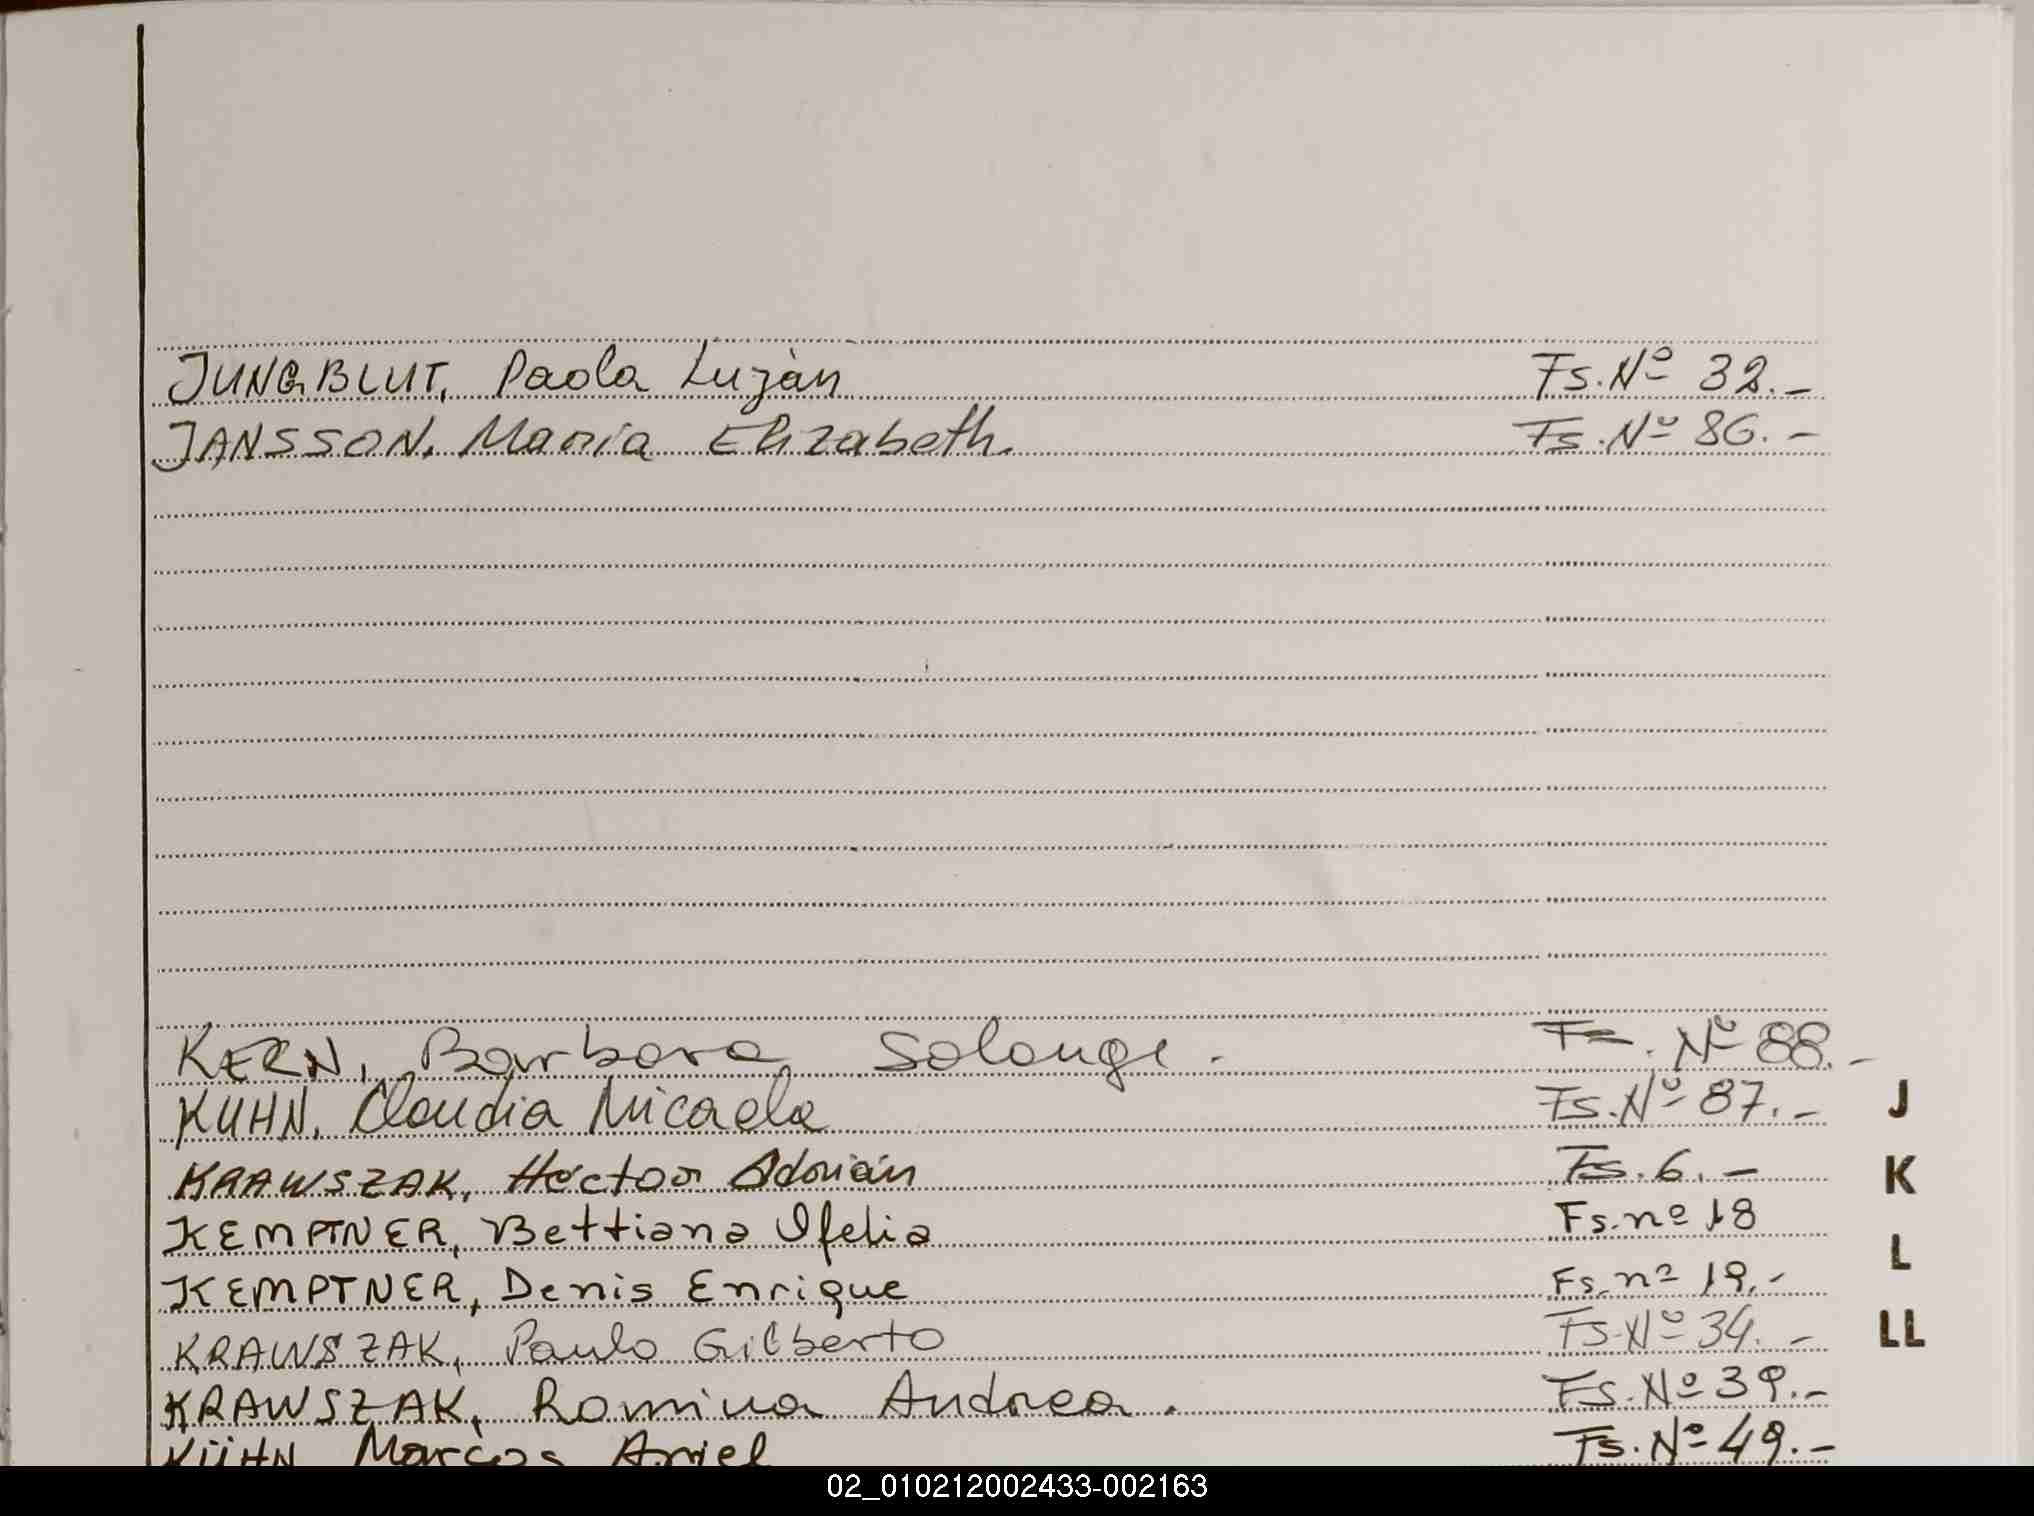 JUNGBLUT, Paola Luján Fs. Nº 32.-
JANSSON, María Elizabeth. Fs. Nº 86.-
KERN, Barbara Solange. Fs. Nº 88.-
KUHN, Claudia Micaela Fs. Nº 87.-
J
KRAWSZAK, Héctor Adrián Fs. 6.-
K
KEMPTNER, Bettiana Ofelia Fs. nº 18
L
KEMPTNER, Denis Enrique Fs. nº 19.-
KRAWSZAK, Paulo Gilberto Fs. Nº 34.-
LL
KRAWSZAK, Romina Andrea. Fs. Nº 39.-
KÜHN Marcos Ariel Fs. Nº 49.-
02_010212002433-002163